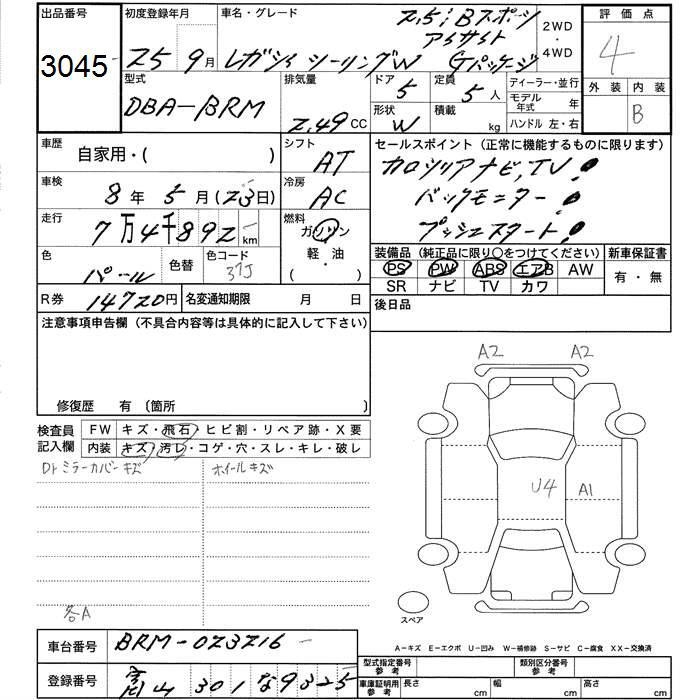 出品番号
3045
初度登録年月
25 9月
車名・グレード
2.5i Bスポーツ
アイサイト
レガシィ ツーリングW Gパッケージ
2WD
・
4WD
評価点
4
外装 内装
B
型式
DBA-BRM
排気量
2.49 CC
ドア
5
定員
5 人
形状
W
積載
kg
ディーラー・並行
モデル年式 年
ハンドル 左・右
車歴
自家用・( )
シフト
AT
セールスポイント (正常に機能するものに限ります)
カロッツリアナビ,TV!
バックモニター!
プッシュスタート!
車検
8年 5月(23日)
冷房
AC
走行
7万4千892km
燃料
ガソリン
軽・油
( ・ )
色
パール
色替
色コード
37J
装備品 (純正品に限り○をつけてください)
PS PW ABS エアB AW
SR ナビ TV カワ
新車保証書
有・無
R券
14720円
名変通知期限 月 日
後日品
注意事項申告欄 (不具合内容等は具体的に記入して下さい)
修復歴 有 〔箇所 〕
検査員
記入欄
FW キズ・飛石・ヒビ割・リペア跡・X要
内装 キズ・汚レ・コゲ・穴・スレ・キレ・破レ
Drミラーカバーキズ
ホイールキズ
各A
A2
A2
U4
A1
スペア
A-キズ E-エクボ U-凹み W-補修跡 S-サビ C-腐食 XX-交換済
車台番号
BRM-023216
登録番号
富山 301 な 9325
型式指定番号
参考
類別区分番号
参考
車庫証明用
参考
長さ cm
幅 cm
高さ cm